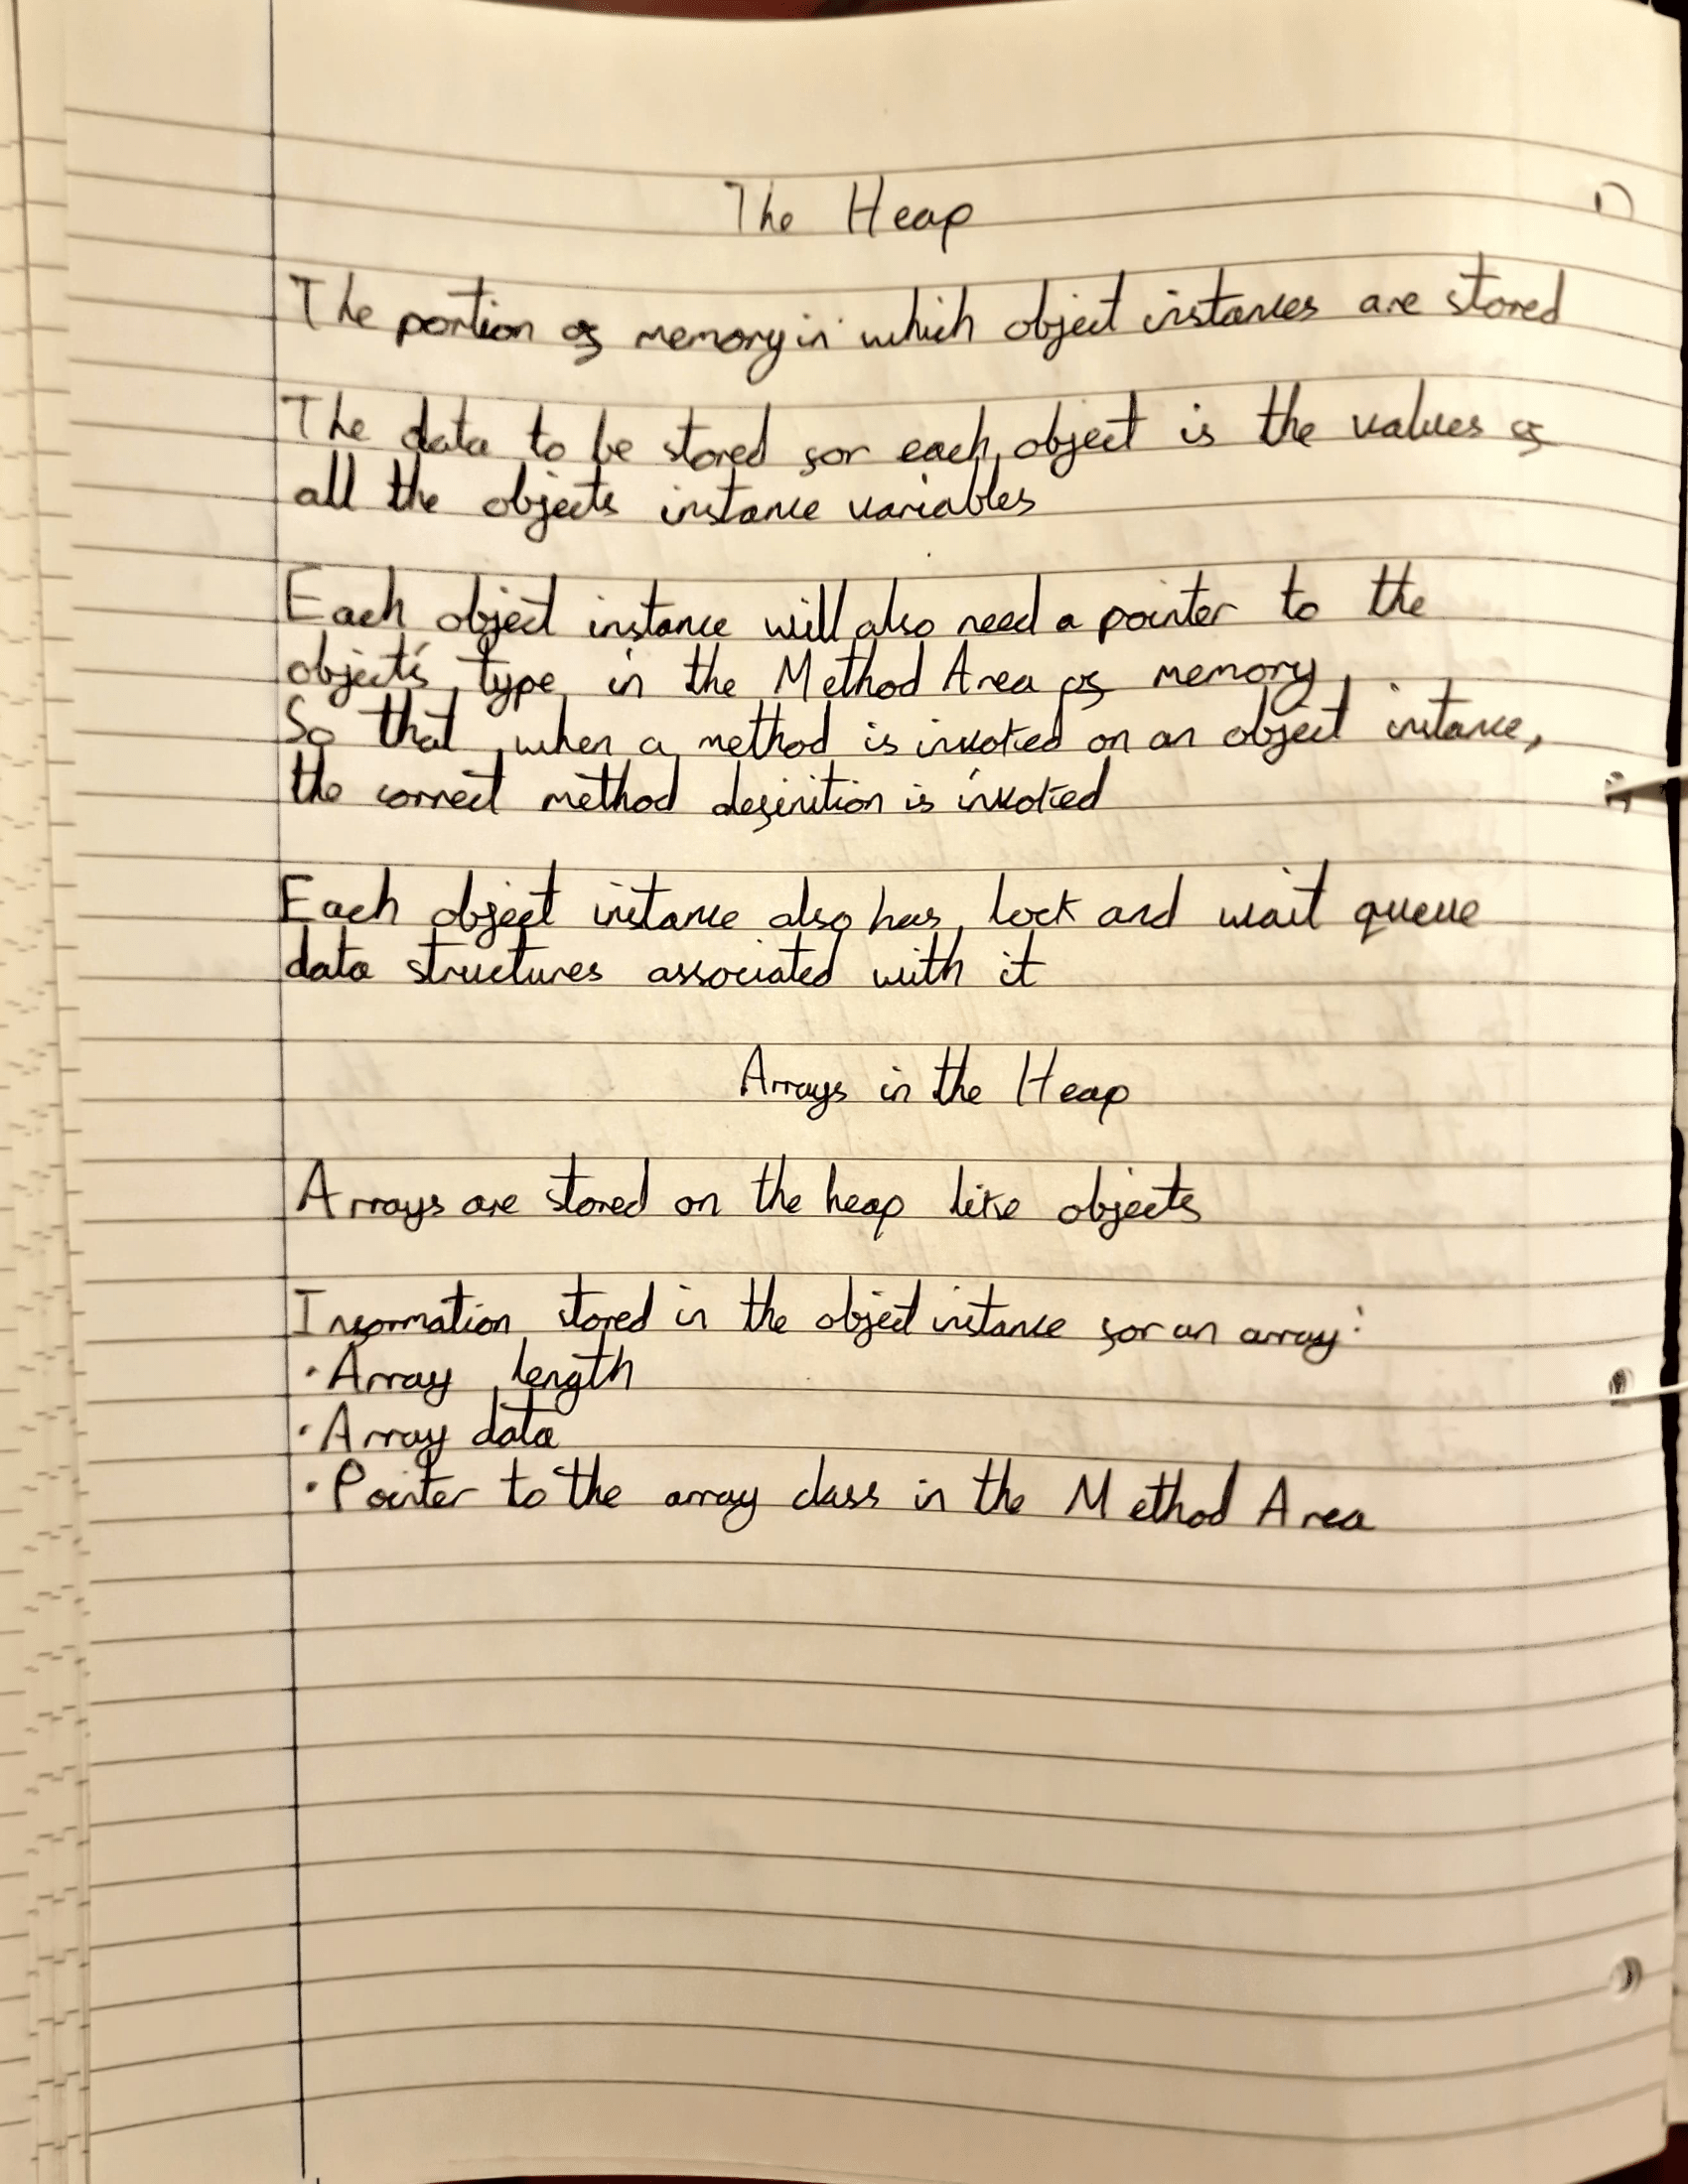 The Heap
The portion of memory in which object instances are stored
The data to be stored for each object is the values of
all the objects instance variables
Each object instance will also need a pointer to the
object's type in the Method Area of memory
So that when a method is invoked on an object instance,
the correct method definition is invoked
Each object instance also has lock and wait queue
data structures associated with it
Arrays in the Heap
Arrays are stored on the heap like objects
Information stored in the object instance for an array:
· Array length
· Array data
· Pointer to the array class in the Method Area